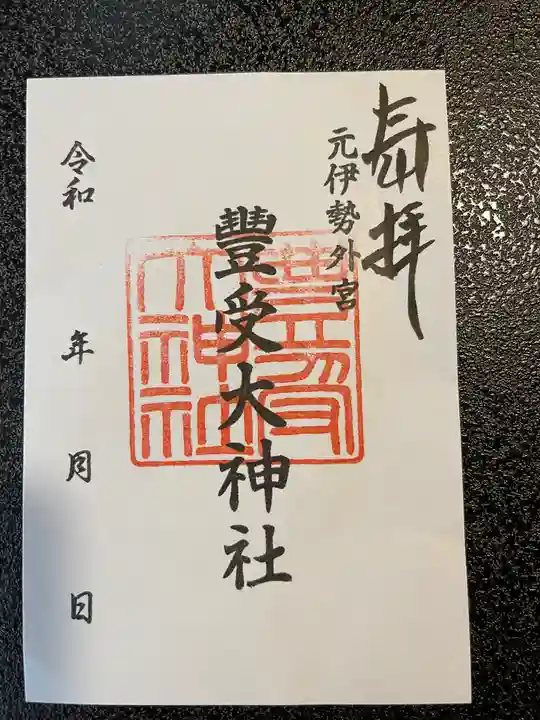 奉拝
元伊勢外宮
豐受大神社
令和 年 月 日
豊受大神社